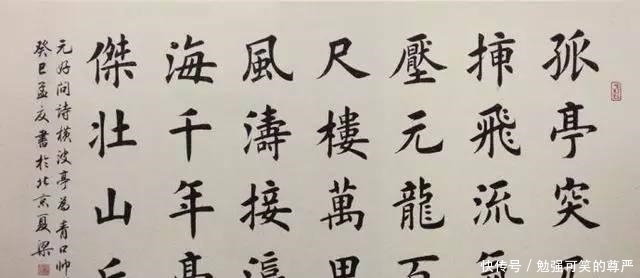 孤亭突
揷飛流
壓元龍百
尺樓萬里
風濤接
海千年
傑壯山丘
元好問詩橫波亭為青口帥
癸巳孟夏書於北京夏梁
快传号/勉强可笑的尊严